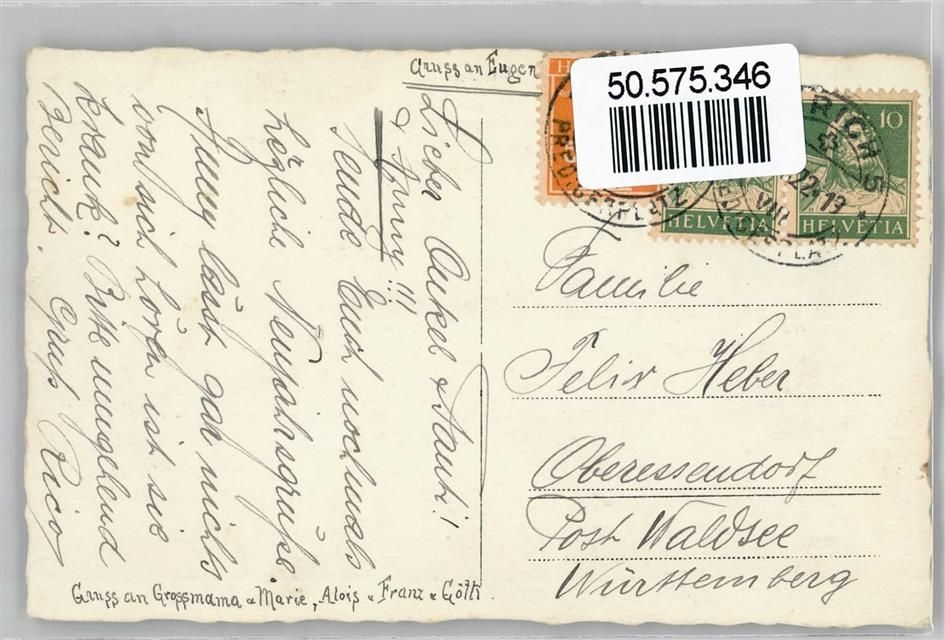 Gruss an Eugen
Lieber Onkel & Tante!
& Anny!!!
Sende Euch nochmals
herzliche Neujahrsgrüße
Anny lässt gar nichts
von sich hören ist sie
krank? Bitte umgehend
Bericht. Gruß Rico
Gruss an Grossmama & Marie, Alois & Franz & Götti.
50.575.346
10
HELVETIA
HELVETIA
PREDIGERPLATZ
Familie
Felix Heber
Oberessendorf
Post Waldsee
Württemberg